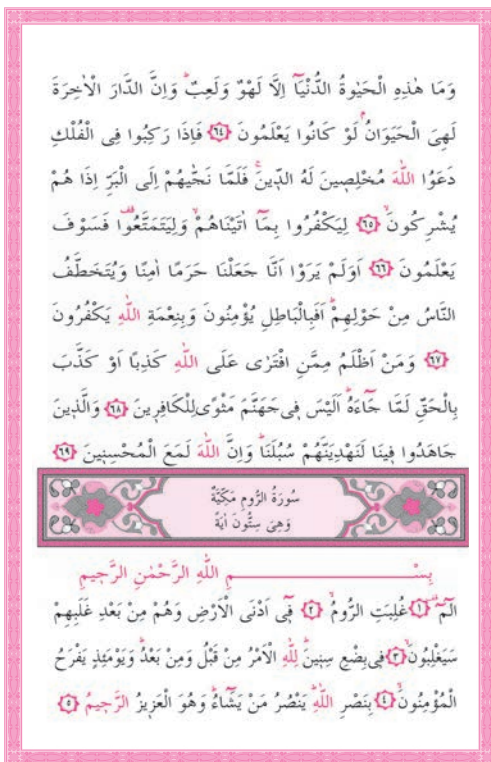 وَمَا هٰذِهِ الْحَيٰوةُ الدُّنْيَٓا اِلَّا لَهْوٌ وَلَعِبٌۜ وَاِنَّ الدَّارَ الْاٰخِرَةَ
لَهِيَ الْحَيَوَانُۢ لَوْ كَانُوا يَعْلَمُونَ ﴿٦٤﴾ فَاِذَا رَكِبُوا فِي الْفُلْكِ
دَعَوُا اللّٰهَ مُخْلِصِينَ لَهُ الدِّينَۚ فَلَمَّا نَجّٰيهُمْ اِلَى الْبَرِّ اِذَا هُمْ
يُشْرِكُونَۙ ﴿٦٥﴾ لِيَكْفُرُوا بِمَٓا اٰتَيْنَاهُمْۙ وَلِيَتَمَتَّعُوا۠ فَسَوْفَ
يَعْلَمُونَ ﴿٦٦﴾ اَوَلَمْ يَرَوْا اَنَّا جَعَلْنَا حَرَمًا اٰمِنًا وَيُتَخَطَّفُ
النَّاسُ مِنْ حَوْلِهِمْۜ اَفَبِالْبَاطِلِ يُؤْمِنُونَ وَبِنِعْمَةِ اللّٰهِ يَكْفُرُونَ
﴿٦٧﴾ وَمَنْ اَظْلَمُ مِمَّنِ افْتَرٰى عَلَى اللّٰهِ كَذِبًا اَوْ كَذَّبَ
بِالْحَقِّ لَمَّا جَٓاءَهُۜ اَلَيْسَ فِي جَهَنَّمَ مَثْوًى لِلْكَافِرِينَ ﴿٦٨﴾ وَالَّذِينَ
جَاهَدُوا فِينَا لَنَهْدِيَنَّهُمْ سُبُلَنَاۜ وَاِنَّ اللّٰهَ لَمَعَ الْمُحْسِنِينَ ﴿٦٩﴾
سُورَةُ الرُّومِ مَكِّيَّةٌ
وَهِيَ سِتُّونَ اٰيَةً
بِسْمِ اللّٰهِ الرَّحْمٰنِ الرَّحِيمِ
الٓمٓۚ ﴿١﴾ غُلِبَتِ الرُّومُۙ ﴿٢﴾ فِٓي اَدْنَى الْاَرْضِ وَهُمْ مِنْ بَعْدِ غَلَبِهِمْ
سَيَغْلِبُونَۙ ﴿٣﴾ فِي بِضْعِ سِنِينَۜ لِلّٰهِ الْاَمْرُ مِنْ قَبْلُ وَمِنْ بَعْدُۜ وَيَوْمَئِذٍ يَفْرَحُ
الْمُؤْمِنُونَۙ ﴿٤﴾ بِنَصْرِ اللّٰهِۜ يَنْصُرُ مَنْ يَشَٓاءُۜ وَهُوَ الْعَزِيزُ الرَّحِيمُ ﴿٥﴾